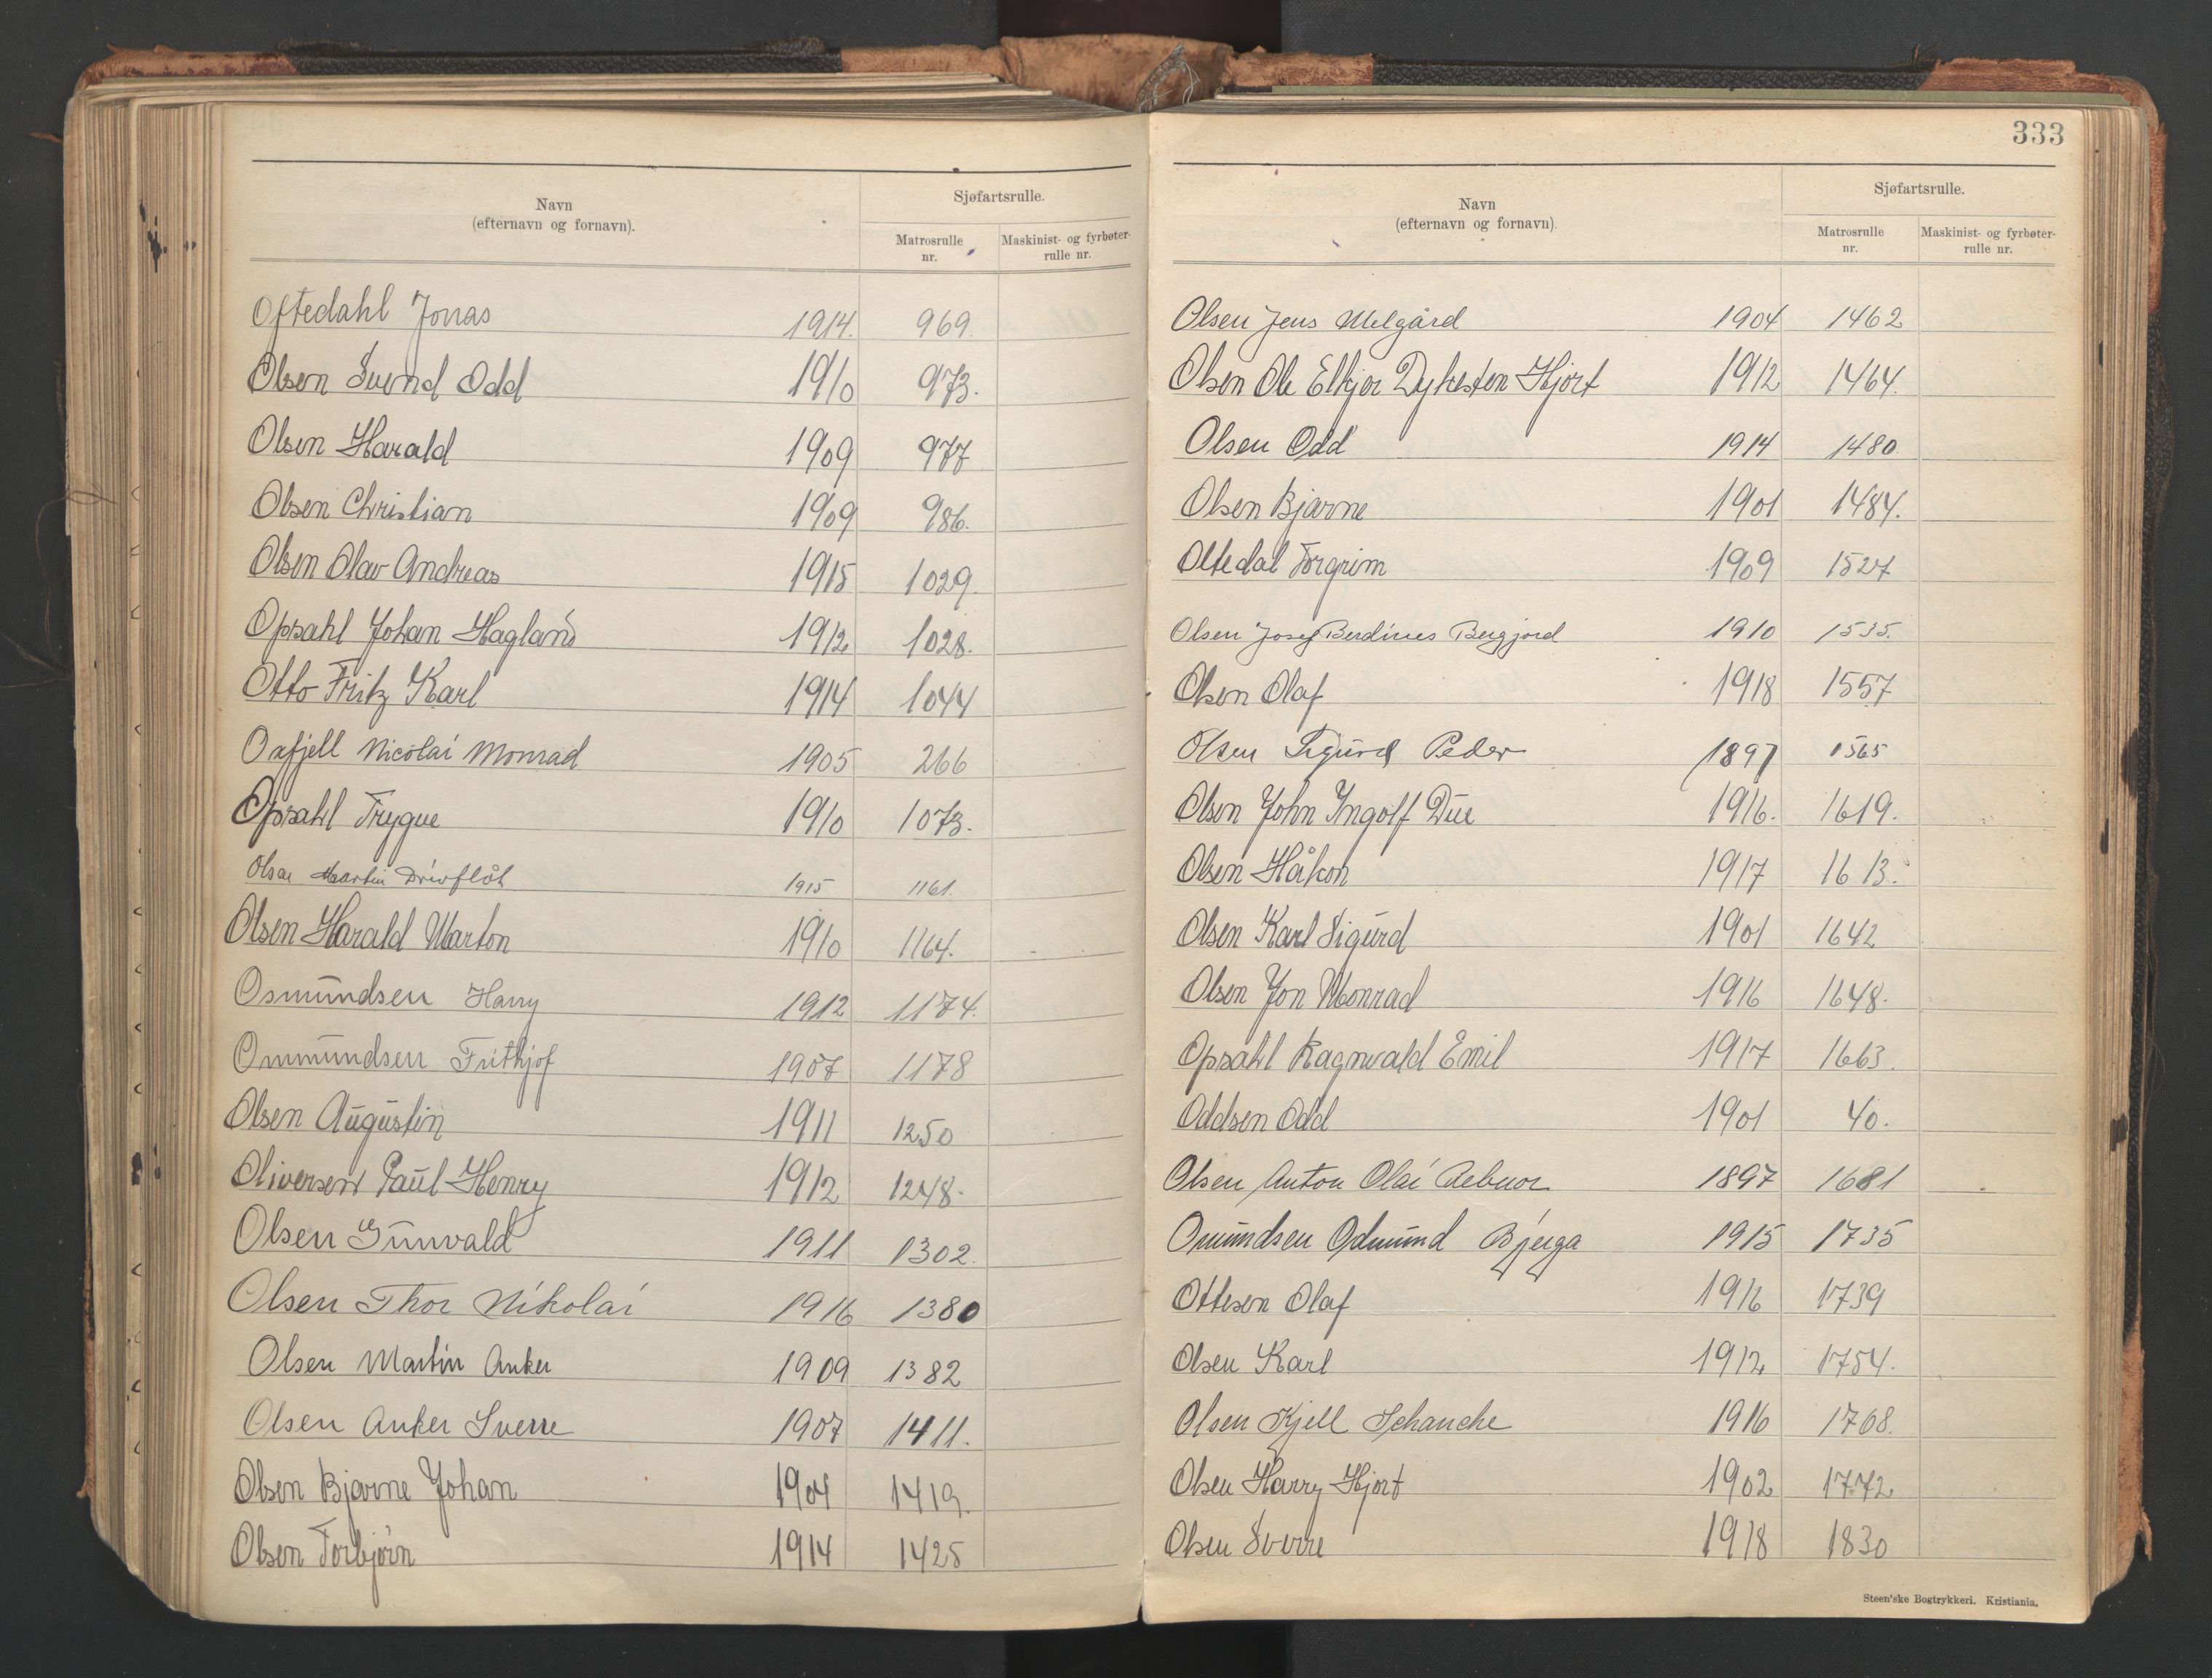 Navn
(efternavn og fornavn).
Sjøfartsrulle.
Matrosrulle nr.
Maskinist- og fyrbøter-rulle nr.
Oftedahl Jonas 1914. 969.
Olsen Svend Odd 1910 973.
Olsen Harald 1909 977
Olsen Christian 1909 986.
Olsen Olav Andreas 1915 1029.
Opsahl Johan Hagland 1912 1028.
Otto Fritz Karl 1914 1044
Oxfjell Nicolai Monrad 1905 266
Opsahl Trygve 1910 1073.
Olsen Martin Drivflåt 1915 1161.
Olsen Harald Marton 1910 1164.
Osmundsen Harry 1912 1174.
Ommundsen Frithjof 1907 1178
Olsen Augustin 1911 1250
Oliversen Paul Henry 1912 1248.
Olsen Gunvald 1911 1302.
Olsen Thor Nikolai 1916 1380
Olsen Martin Anker 1909 1382
Olsen Anker Sverre 1907 1411.
Olsen Bjarne Johan 1904 1419.
Olsen Torbjørn 1914 1425
333
Navn
(efternavn og fornavn).
Sjøfartsrulle.
Matrosrulle nr.
Maskinist- og fyrbøter-rulle nr.
Olsen Jens Melgård 1904 1462
Olsen Ole Elkjer Dyhesten Hjort 1912 1464.
Olsen Odd 1914 1480
Olsen Bjarne 1901 1484.
Oltedal Torgrim 1909 1527
Olsen Josef Berdines Bergjord 1910 1535.
Olsen Olaf 1918 1557
Olsen Sigurd Peder 1897 1565
Olsen John Ingolf Due 1916. 1619.
Olsen Håkon 1917 1613.
Olsen Karl Sigurd 1901 1642
Olsen Jon Monrad 1916 1648.
Opsahl Ragnvald Emil 1917 1663.
Oddsen Odd 1901 40.
Olsen Anton Olai 1897 1681
Omundsen Odmund Bjerga 1915 1735
Ottesen Olaf 1916 1739
Olsen Karl 1912 1754.
Olsen Kjell Schanche 1916 1768.
Olsen Harry Hjort 1902 1772
Olsen Sverre 1918 1830
Steen'ske Bogtrykkeri. Kristiania.